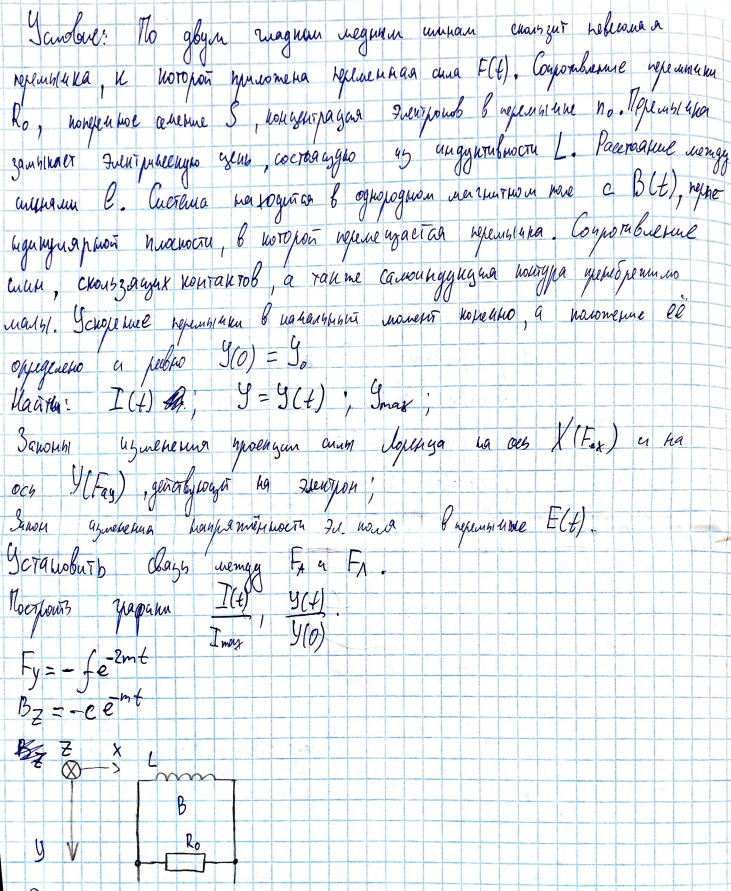 Условие: По двум гладким медным шинам скользит невесомая
перемычка, к которой приложена переменная сила F(t). Сопротивление перемычки
R₀, поперечное сечение S, концентрация электронов в перемычке n₀. Перемычка
замыкает электрическую цепь, состоящую из индуктивности L. Расстояние между
шинами l. Система находится в однородном магнитном поле с B(t), перпе
ндикулярной плоскости, в которой перемещается перемычка. Сопротивление
шин, скользящих контактов, а также самоиндукция контура пренебрежимо
малы. Ускорение перемычки в начальный момент конечно, а положение её
определено и равно y(0) = y₀
Найти: I(t); y = y(t); ymax;
Законы изменения проекции силы Лоренца на ось X(Fлx) и на
ось Y(Fлy), действующей на электрон;
Закон изменения напряжённости эл. поля в перемычке E(t).
Установить связь между FA и FЛ.
Построить графики I(t)/Imax, y(t)/y(0).
Fy = -fe^-2mt
Bz = -ce^-mt
Z X L
B
R₀
y